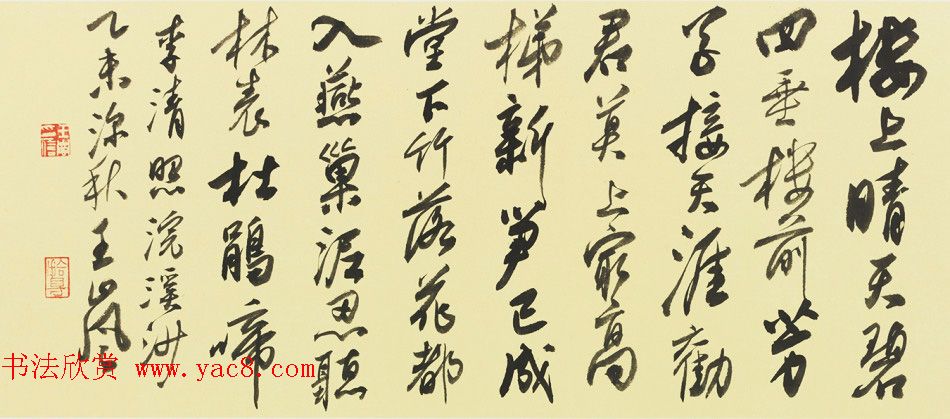 樓上晴天碧
四垂樓前芳
草接天涯勸
君莫上最高
梯新笋已成
堂下竹落花都
入燕巢泥忍聽
林表杜鵑啼
李清照浣溪沙
乙未深秋王嵐
书法欣赏 www.yac8.com